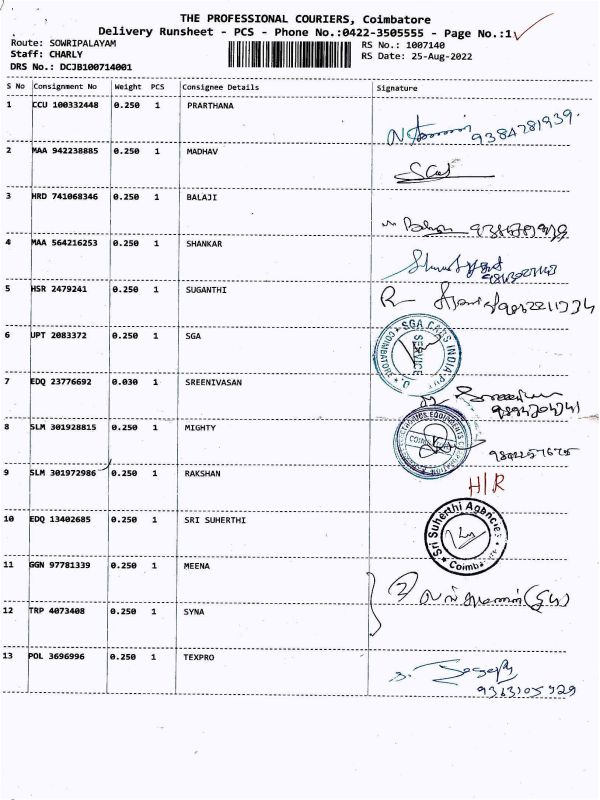 THE PROFESSIONAL COURIERS, Coimbatore
Delivery Runsheet - PCS - Phone No.:0422-3505555 - Page No.:1
Route: SOWRIPALAYAM
RS No.: 1007140
Staff: CHARLY
RS Date: 25-Aug-2022
DRS No.: DCJB100714001
S No Consignment No Weight PCS Consignee Details Signature
1 CCU 100332448 0.250 1 PRARTHANA
9384281939.
2 MAA 942238885 0.250 1 MADHAV
3 HRD 741068346 0.250 1 BALAJI
4 MAA 564216253 0.250 1 SHANKAR
5 HSR 2479241 0.250 1 SUGANTHI
R
6 UPT 2083372 0.250 1 SGA
SGA CARS INDIA
SERVICE
7 EDQ 23776692 0.030 1 SREENIVASAN
8 SLM 301928815 0.250 1 MIGHTY
EQUIPMENTS
9 SLM 301972986 0.250 1 RAKSHAN
H/R
10 EDQ 13402685 0.250 1 SRI SUHERTHI
Sri Suherthi Agencies
Coimba
11 GGN 97781339 0.250 1 MEENA
12 TRP 4073408 0.250 1 SYNA
13 POL 3696996 0.250 1 TEXPRO